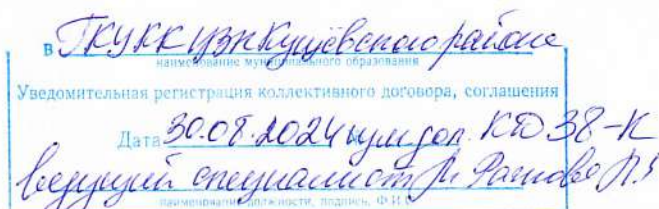 в ГКУ КК ЦЗН Кущёвского района
наименование муниципального образования
Уведомительная регистрация коллективного договора, соглашения
Дата 30.08.2024 КД 38-К
ведущий специалист
наименование должности, подпись, Ф.И.О